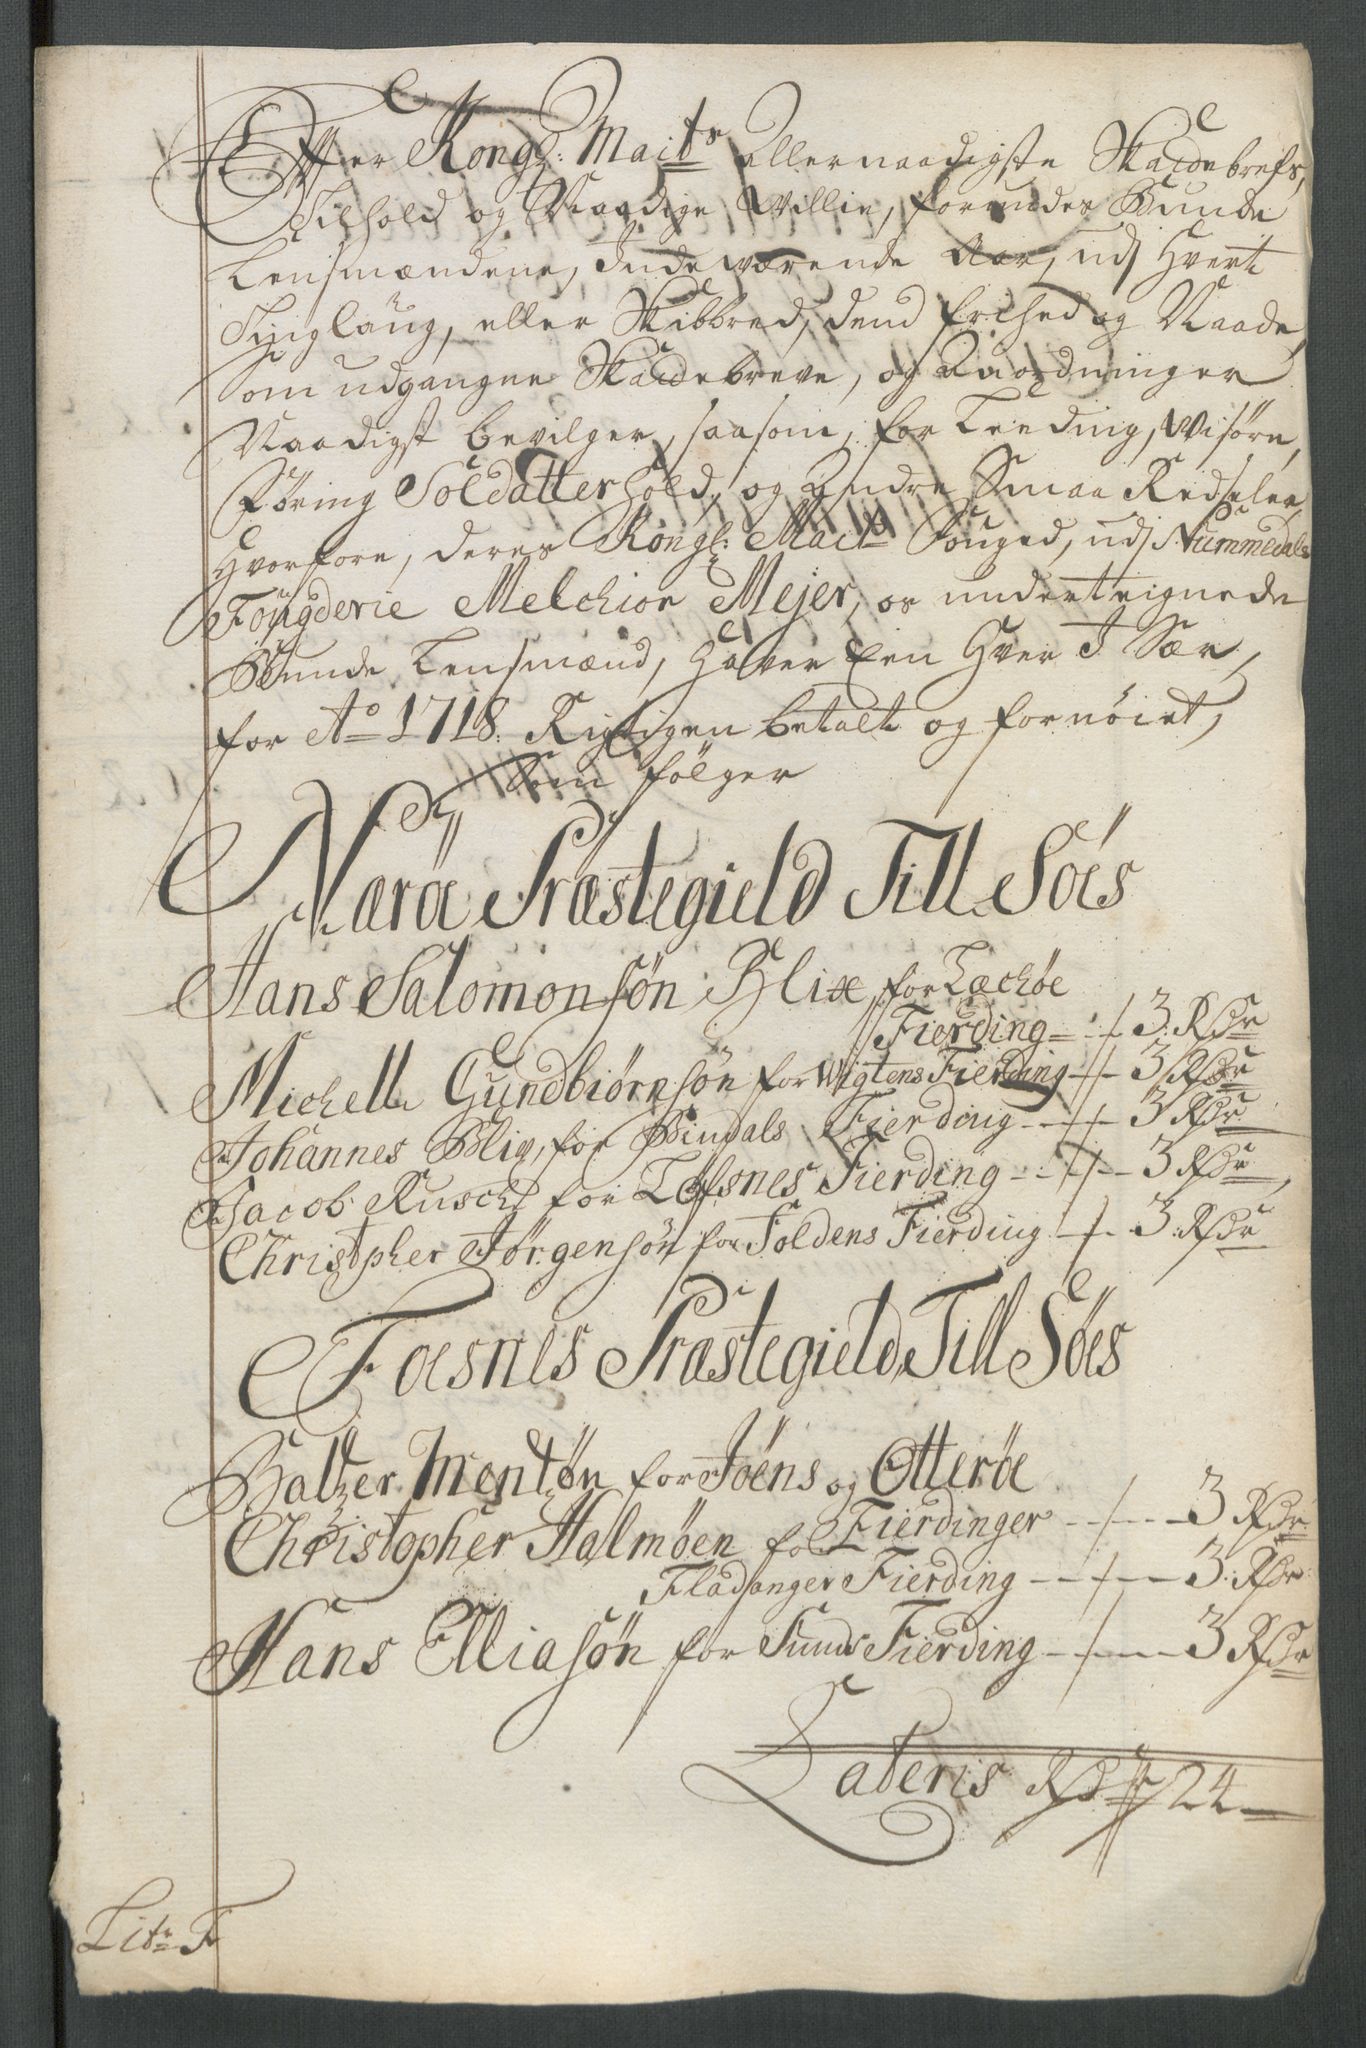 Effter Kongl: Maits allernaadigste Skatdebrefs,
Tilhold og Naadige Willie, forundes Bunde
Lensmændene, Indeværende Aar, udj Hvert
Tinglaug, eller Skibbred, dend frihed og Naade,
Som udgangne Skatdebreve, og Anordninger
Naadigst bevilger, saasom, for Leeding, Wisøre,
Føring Soldatterhold, og Andre Smaa Redseler,
Hvorfore, deres Kongl: Maits Fouged, udj Nummedals
Fougderie Melchior Mejer, os underteignede
Bunde Lensmænd, Haver Een Hver I Sær,
for Ao 1718. Rigtigen betalt og fornöiet,
Som fölger
Næröe Præstegield Till Söes
Hans Salomonsön Blix for Læchöe
Fierding - 3. Rdr
Michell Gundbiørnsön for Wigtens Fierding - 3 Rdr
Johannes Blix, for Bindals Fierding - 3 Rdr
Jacob Rusch for Lefsnes Fierding - 3 Rdr
Christopher Jörgensön for Foldens Fierding - 3. Rdr
Foesnes Præstegield, Till Söes
Baltzer Mentzön for Jöens og Otteröe
Fierdinger - 3 Rdr
Christopher Halmöen for
Fladanger Fierding - 3. Rdr
Hans Elliasön for Sunds Fierding - 3 Rdr
Lateris Rdr 24
Litr F